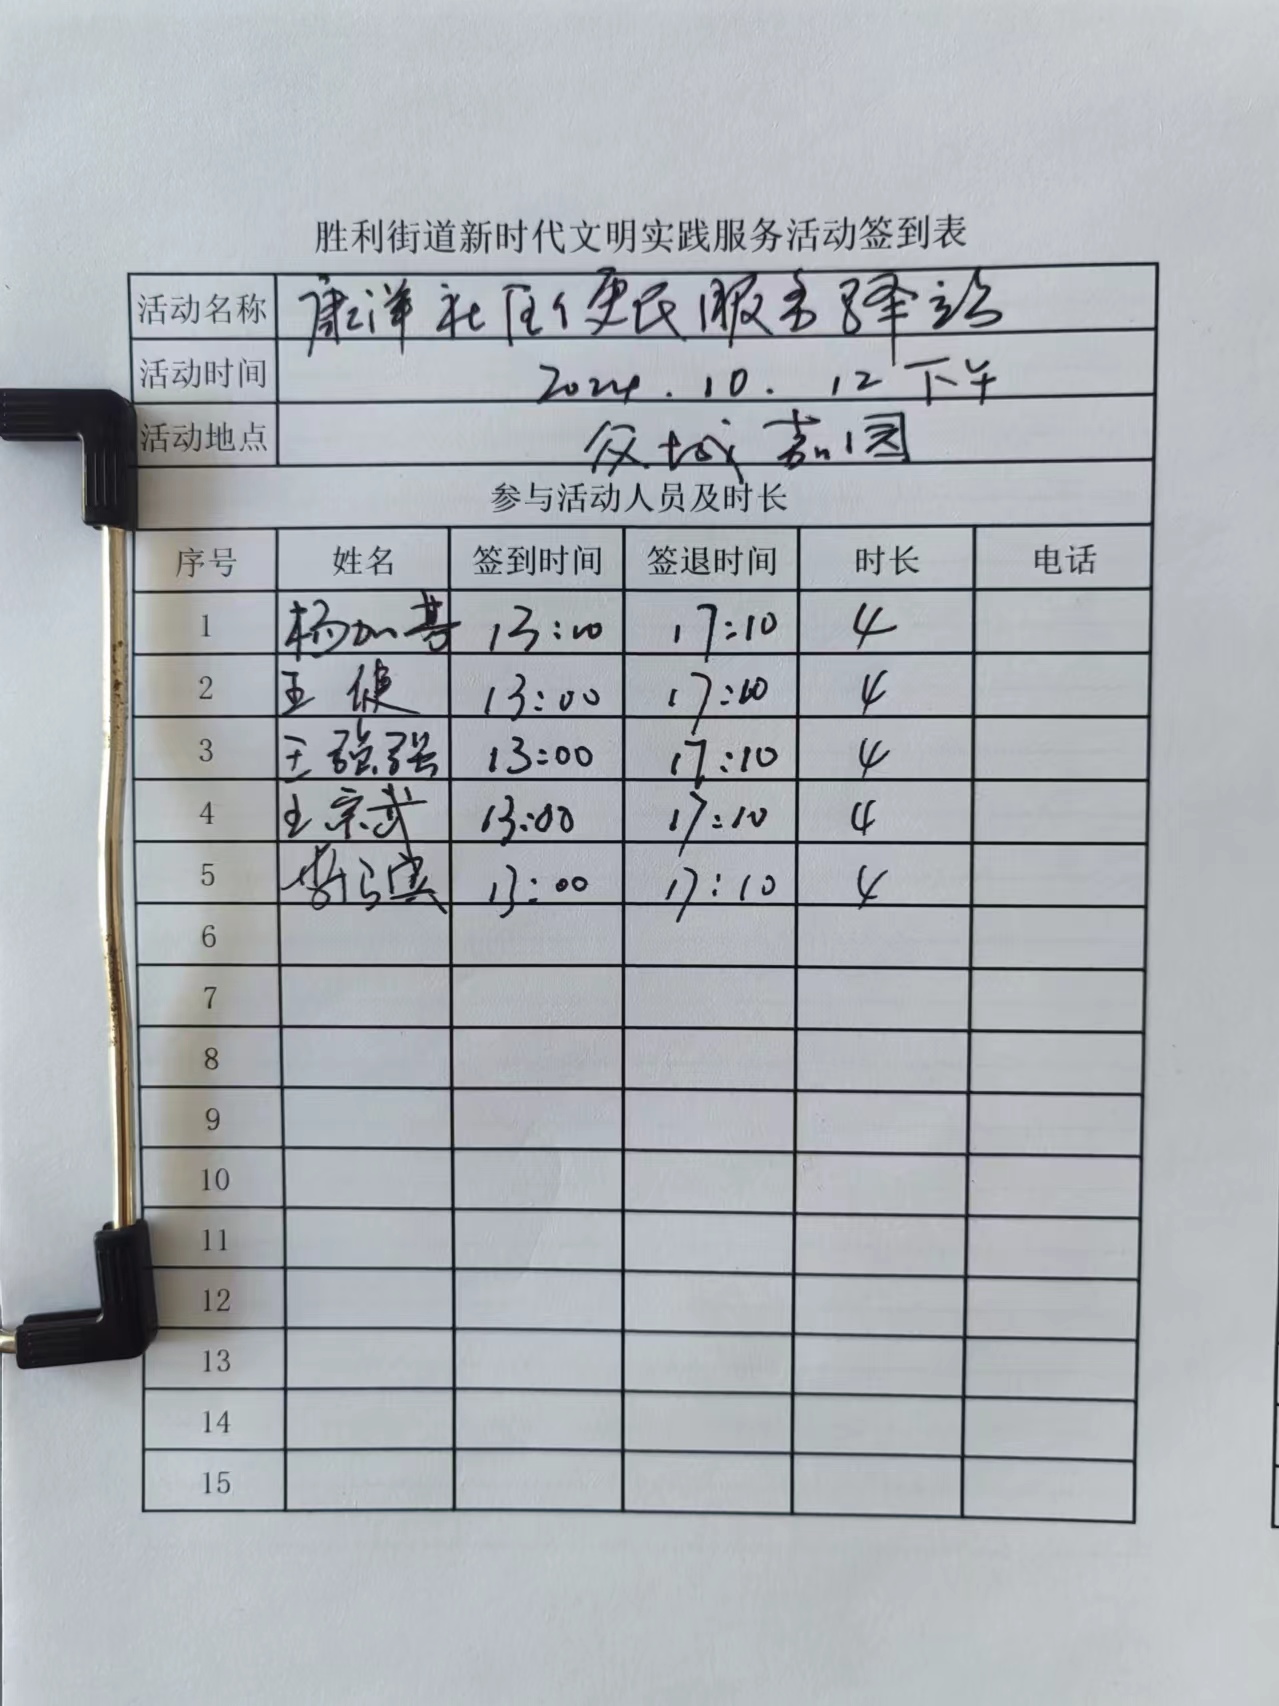 胜利街道新时代文明实践服务活动签到表
活动名称 康洋社区便民服务驿站
活动时间 2024.10.12下午
活动地点 嘉园
参与活动人员及时长
序号 姓名 签到时间 签退时间 时长 电话
1 杨加基 13:00 17:10 4
2 王健 13:00 17:10 4
3 王强强 13:00 17:10 4
4 王宗武 13:00 17:10 4
5 13:00 17:10 4
6
7
8
9
10
11
12
13
14
15